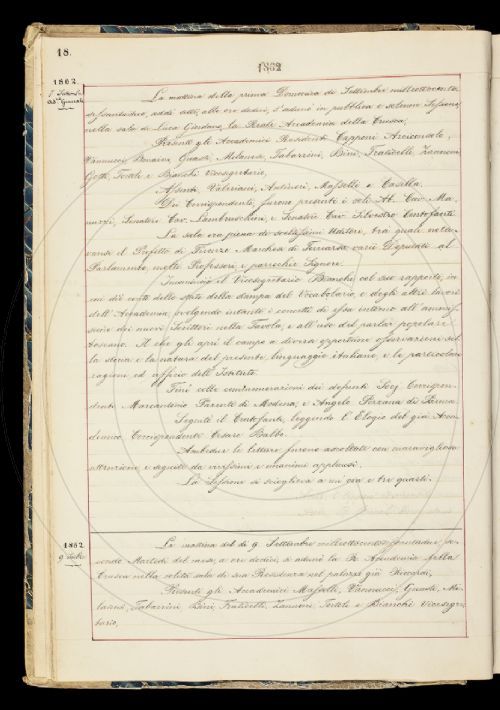 18.
1862
1862.
7. Settembre
Ad.za Generale
La mattina della prima Domenica di Settembre milleottocento
sessantadue, addì sette, alle ore dodici, s'adunò in pubblica e solenne Sessione,
nella sala di Luca Giordano, la Reale Accademia della Crusca.
Presenti gli Accademici Residenti Capponi Arciconsolo,
Vannucci, Bonaini, Guasti, Milanesi, Tabarrini, Bini, Fraticelli, Zannoni,
Tortoli e Bianchi Vicesegretario,
Assenti, Valeriani, Antinori, Maffetti e Casella.
Dei Corrispondenti, furono presenti i soli Ab. Cav. Ma-
nuzzi, Senatore Cav. Lambruschini, e Senatore Cav. Silvestro Centofanti
La sala era piena di sceltissimi Uditori, tra quali nota-
vansi il Prefetto di Firenze Marchese di Torrearsa varii Deputati al
Parlamento, molti Professori e parecchie Signore.
Incominciò il Vicesegretario Bianchi col suo rapporto, in
cui diè conto dello stato della stampa del Vocabolario, e degli altri lavori
dell'Accademia, svolgendo intanto i concetti di essa intorno all'ammis-
sione dei nuovi Scrittori nella Tavola, e all'uso del parlar popolare
toscano. Il che gli aprì il campo a diverse opportune osservazioni sul
la storia e la natura del presente linguaggio italiano, e le particolari
ragioni ed officio dell'Istituto.
Finì colle commemorazioni dei defunti Socj Corrispon-
denti Marcantonio Parenti di Modena, e Angelo Pezzana di Parma.
Seguitò il Centofanti, leggendo l'Elogio del già Acca-
demico Corrispondente Cesare Balbo.
Ambedue le letture furono ascoltate con maravigliosa
attenzione e seguite da vivissimi e unanimi applausi.
La Sessione si scioglieva a un'ora e tre quarti.
1862
9. Settbre
La mattina del dì 9. Settembre milleottocentosessantadue, es-
sendo Martedì del mese, a ore dodici, si adunò la R. Accademia della
Crusca nella solita sala di sua Residenza nel palazzo già Riccardi,
Presenti gli Accademici Maffetti, Vannucci, Guasti, Mi-
lanesi, Tabarrini, Bini, Fraticelli, Zannoni, Tortoli e Bianchi Vicesegre-
tario,